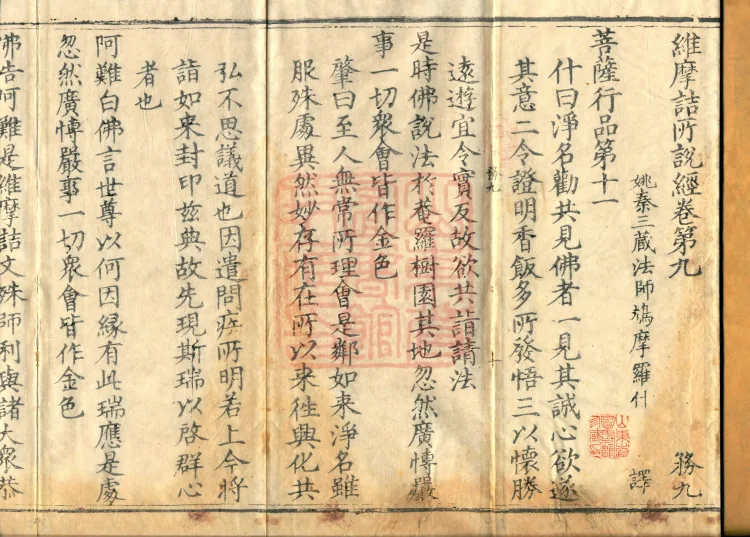 維摩詰所說經卷第九 務九
姚秦三蔵法師鳩摩羅什 譯
菩薩行品第十一
什曰淨名勸共見佛者一見其誠心欲遂
其意二令證明香飯多所發悟三以懷勝
務九
遠遊宜令實反故欲共詣請法
是時佛說法於菴羅樹園其地忽然廣博嚴
事一切衆會皆作金色
肇曰至人無常所理會是鄰如来淨名雖
服殊處異然妙存有在所以来徃興化共
弘不思議道也因遣問疾所明若上今将
詣如来封印兹典故先現斯瑞以啓群心
者也
阿難白佛言世尊以何因緣有此瑞應是處
忽然廣博嚴事一切衆會皆作金色
佛告阿難是維摩詰文殊師利與諸大衆恭